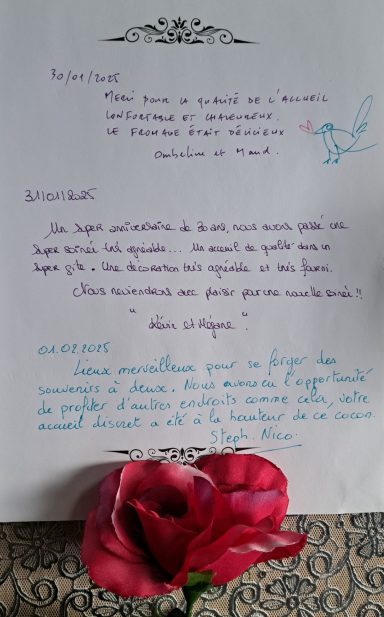 30/01/2025
MERCI POUR LA QUALITÉ DE L'ACCUEIL
CONFORTABLE ET CHALEUREUX.
LE FROMAGE ÉTAIT DÉLICIEUX
Ombeline et Maud.
31/01/2025
Un super anniversaire de 30 ans, nous avons passé une
super soirée très agréable... Un accueil de qualité dans un
super gîte. Une décoration très agréable et très fourni.
Nous reviendrons avec plaisir pour une nouvelle soirée!!
" Kévin et Mégane. "
01.02.2025
Lieux merveilleux pour se forger des
souvenirs à deux. Nous avons eu l'opportunité
de profiter d'autres endroits comme cela, votre
accueil discret a été à la hauteur de ce cocon.
Steph. Nico.